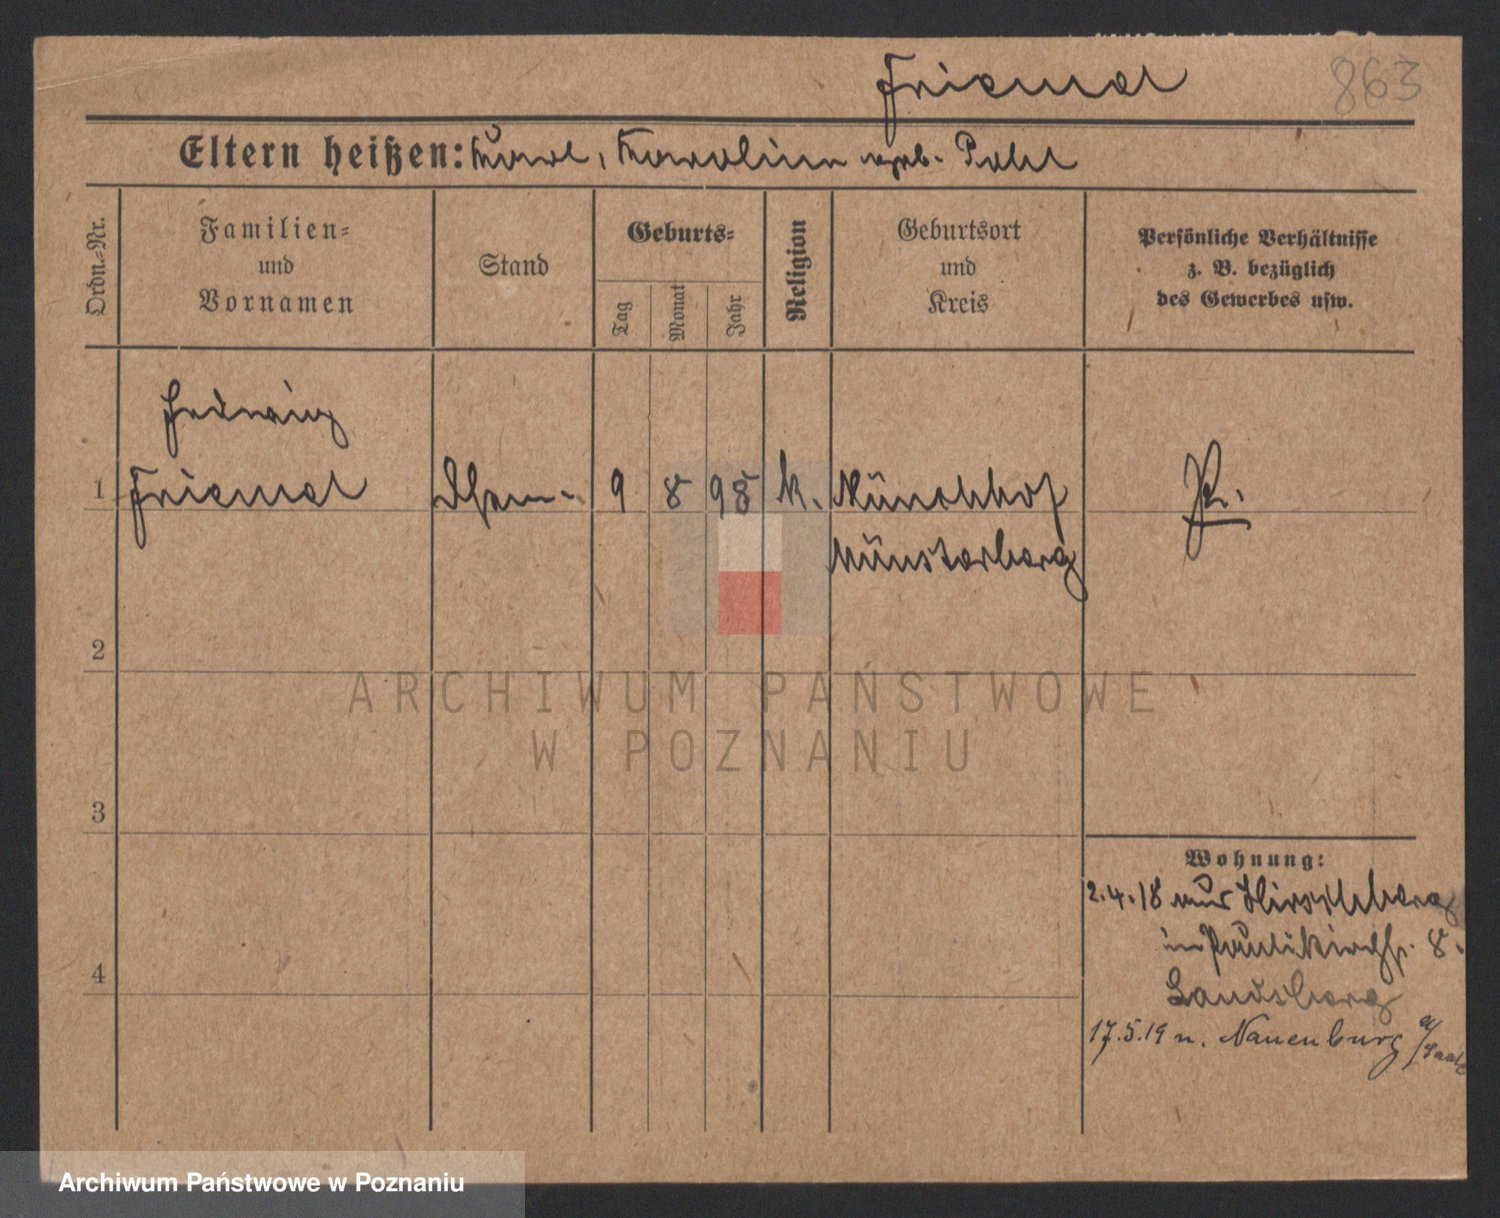 Friemel
863
Eltern heißen: Karl, Karoline geb. Pohl
Ordn.-Nr.
Familien-
und
Vornamen
Stand
Geburts-
Tag
Monat
Jahr
Religion
Geburtsort
und
Kreis
Persönliche Verhältnisse
z. B. bezüglich
des Gewerbes usw.
Hedwig
1 Friemel 9 8 98 k. Münchhof
Münsterberg
2
3
4
Wohnung:
2.4.18 aus Hirschberg
in Paulikirchstr. 8.
Landsberg
17.5.19 n. Nauenburg a/Saale
ARCHIWUM PAŃSTWOWE
W POZNANIU
Archiwum Państwowe w Poznaniu